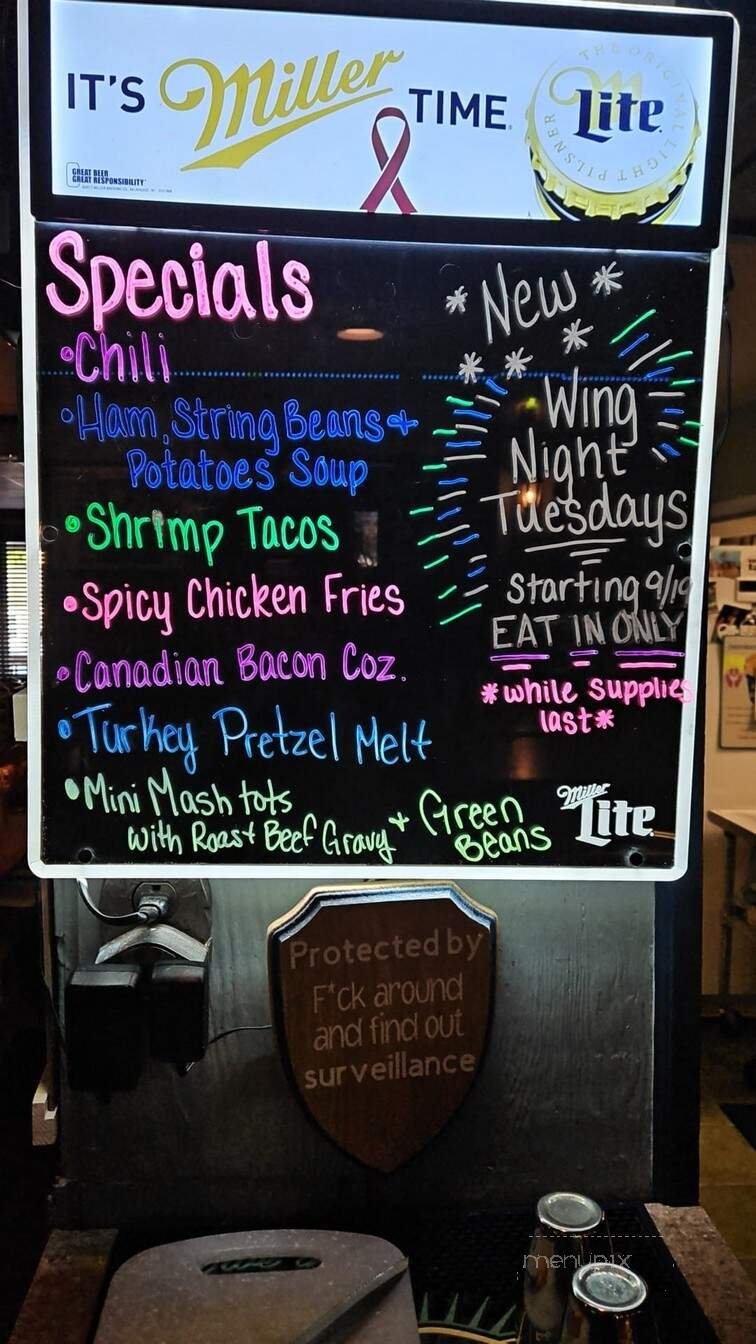 IT'S Miller TIME
THE ORIGINAL LIGHT PILSNER
Lite
GREAT BEER
GREAT RESPONSIBILITY
Specials
•Chili
•Ham, String Beans +
Potatoes Soup
•Shrimp Tacos
•Spicy Chicken Fries
•Canadian Bacon Coz.
•Turkey Pretzel Melt
•Mini Mash tots
with Roast Beef Gravy + Green
Beans
* New *
* * *
Wing
Night
Tuesdays
Starting 9/19
EAT IN ONLY
*while supplies
last*
Miller
Lite
Protected by
F*ck around
and find out
surveillance
menupix